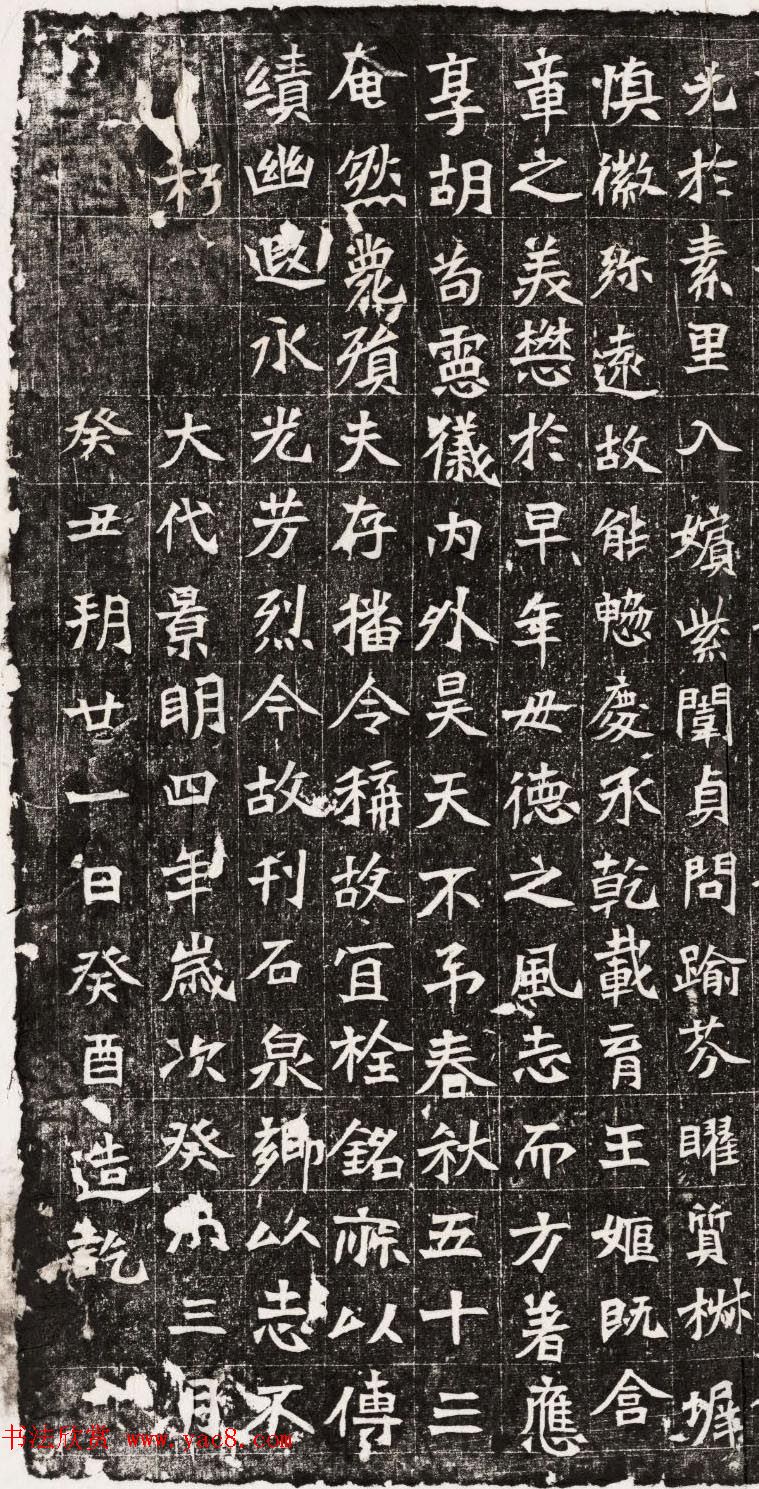 光於素里入嬪紫闈貞問踰芬曜質椒墀
慎徽弥遠故能惣慶承乾載育王姬既含
章之美懋於早年毋德之風志而方著應
享胡苟靈儀內外昊天不弔春秋五十三
奄然薨殞夫存播令稱故宜栓銘以傳
績幽遐永光芳烈今故刊石泉鄉以志不
朽 大代景明四年歲次癸未三月
癸丑朔廿一日癸酉造訖
书法欣赏 www.yac8.com